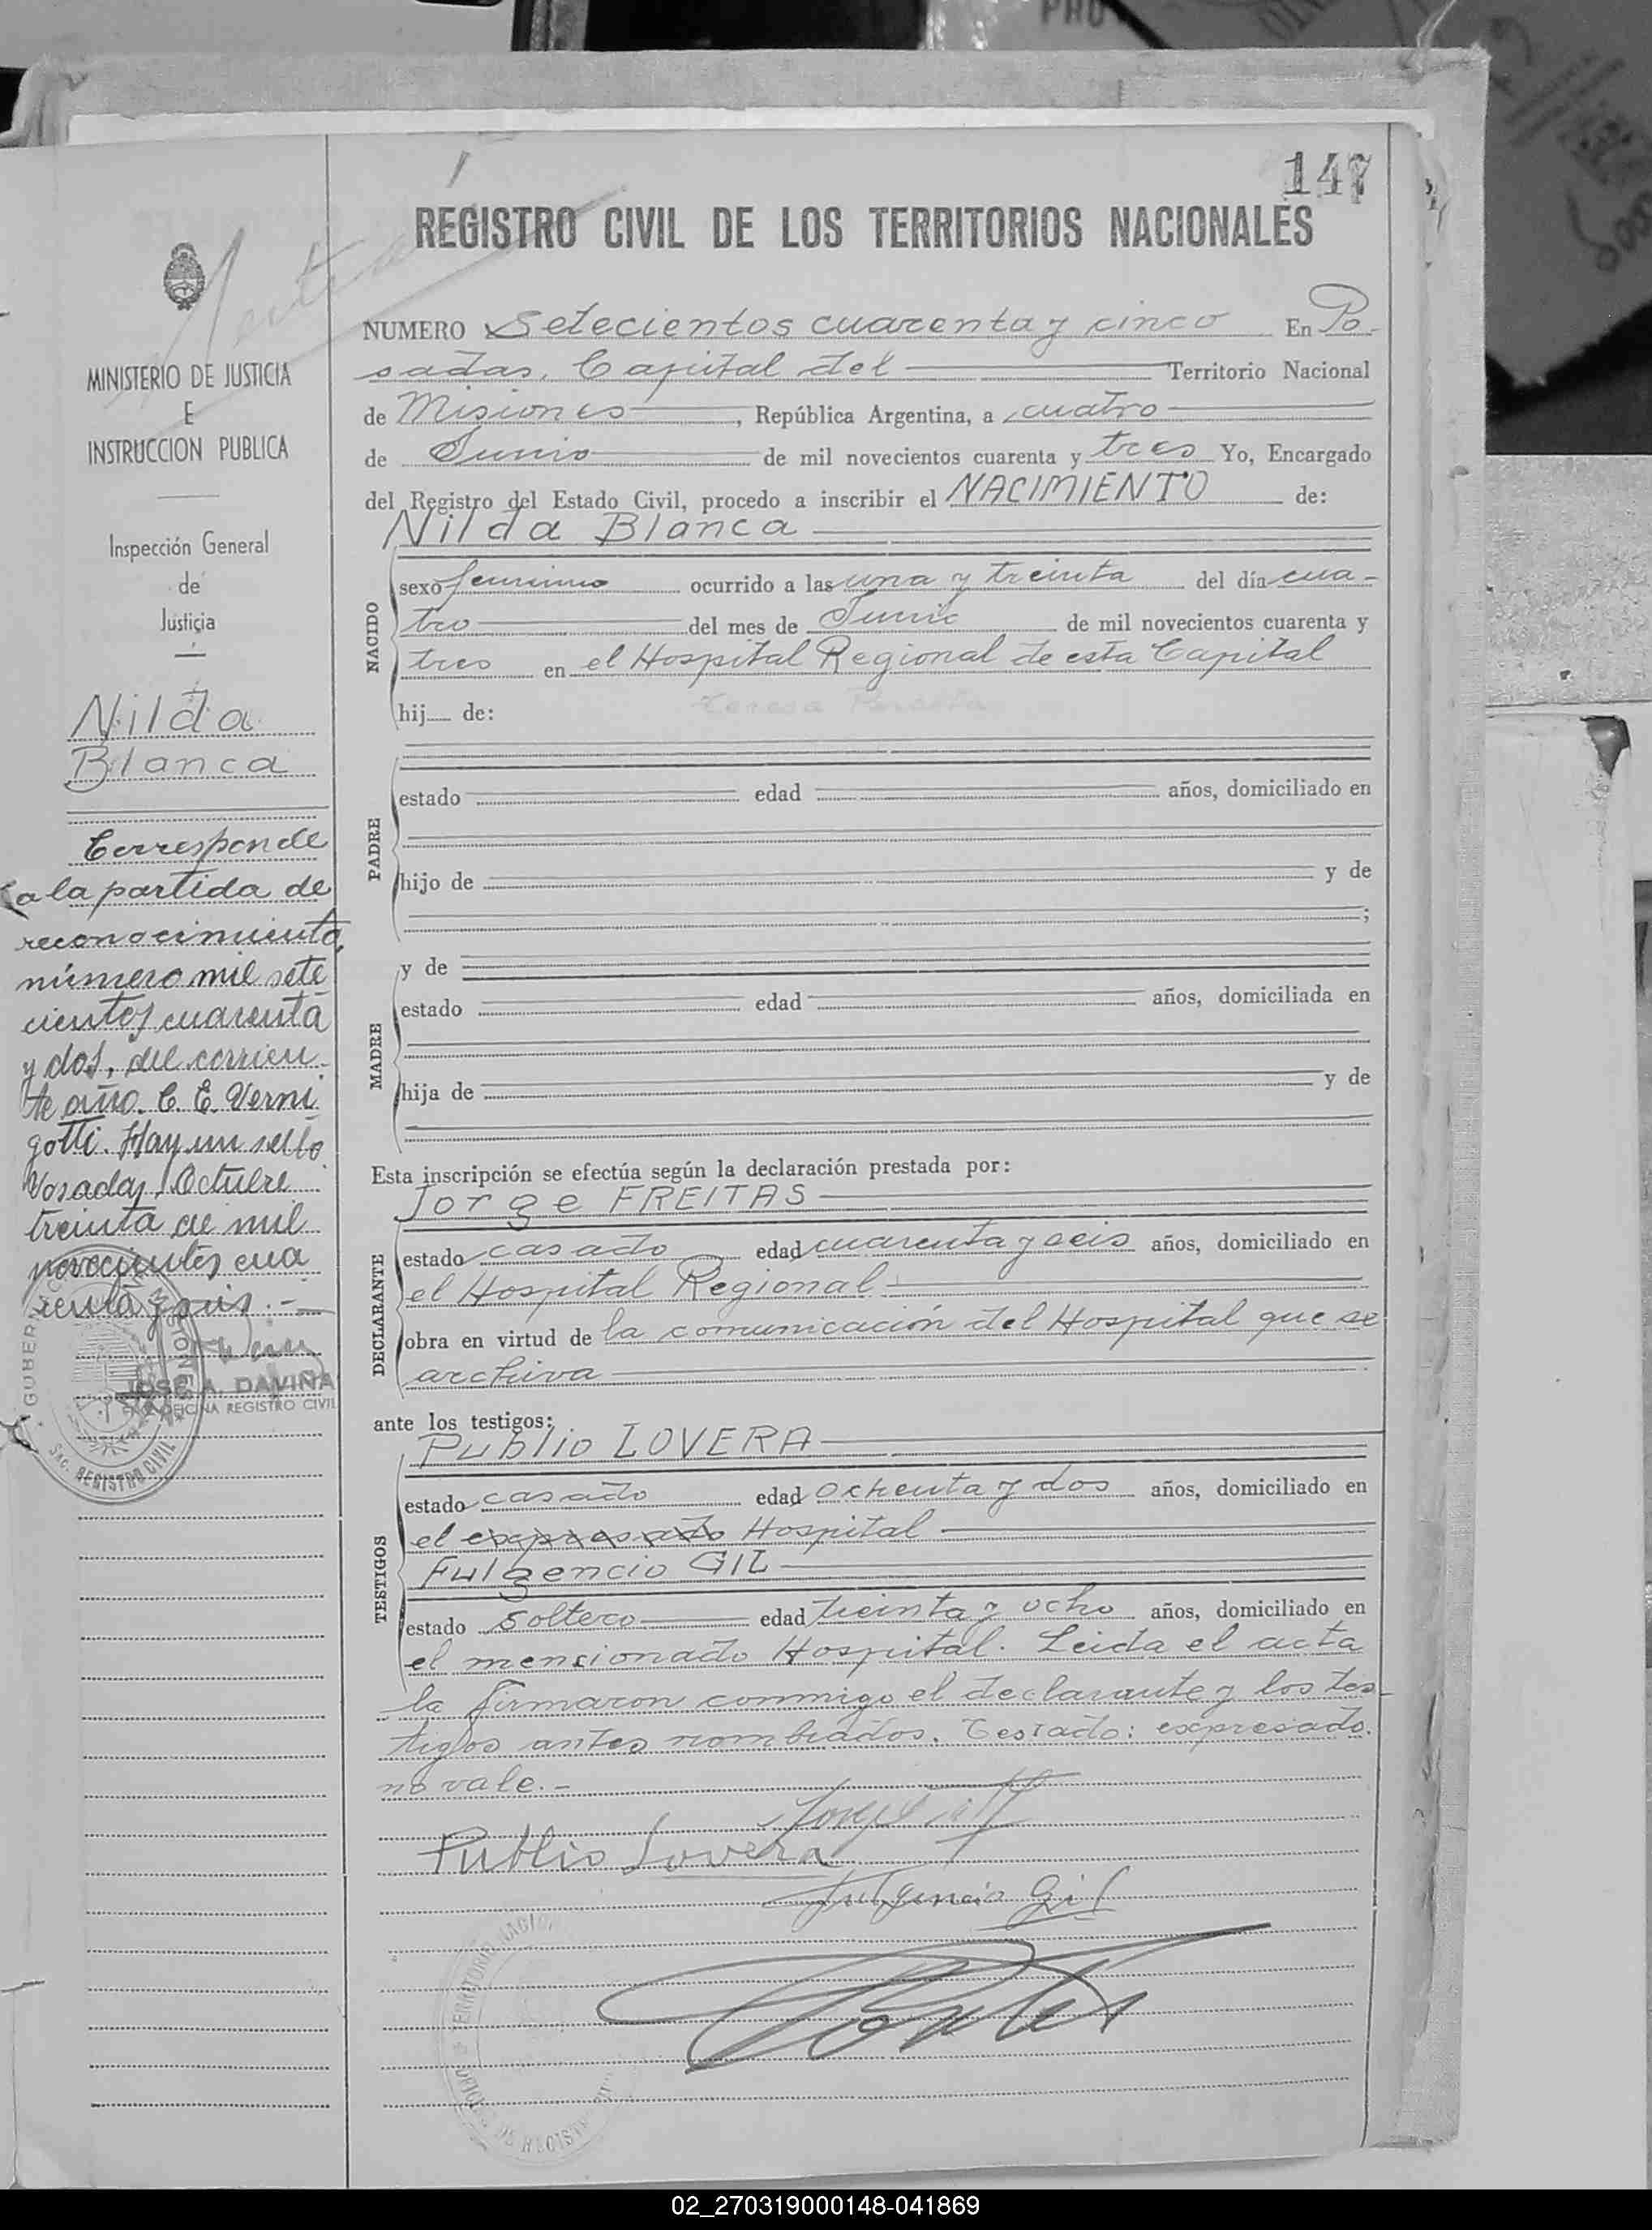 147
REGISTRO CIVIL DE LOS TERRITORIOS NACIONALES
MINISTERIO DE JUSTICIA
E
INSTRUCCION PUBLICA
Inspección General
de
Justicia
Nilda
Blanca
Corresponde
a la partida de
reconocimiento,
número mil sete
cientos cuarenta
y dos, del corrien-
te año. C. E. Verni
gotti. Hay un sello
Posadas, Octubre
treinta de mil
novecientos cua
renta y seis.-
JOSE A. DAVIÑA
OFICINA REGISTRO CIVIL
NUMERO Setecientos cuarenta y cinco En Po-
sadas, Capital del Territorio Nacional
de Misiones, República Argentina, a cuatro
de Junio de mil novecientos cuarenta y tres Yo, Encargado
del Registro del Estado Civil, procedo a inscribir el NACIMIENTO de:
Nilda Blanca
NACIDO
sexo femenino ocurrido a las una y treinta del día cua-
tro del mes de Junio de mil novecientos cuarenta y
tres en el Hospital Regional de esta Capital
hij de:
PADRE
estado edad años, domiciliado en
hijo de y de
;
MADRE
y de
estado edad años, domiciliada en
hija de y de
Esta inscripción se efectúa según la declaración prestada por:
Jorge FREITAS
DECLARANTE
estado casado edad cuarenta y seis años, domiciliado en
el Hospital Regional
obra en virtud de la comunicación del Hospital que se
archiva
ante los testigos:
Publio LOVERA
TESTIGOS
estado casado edad ochenta y dos años, domiciliado en
el expresado Hospital
Fulgencio GIL
estado soltero edad treinta y ocho años, domiciliado en
el mencionado Hospital. Leida el acta
la firmaron conmigo el declarante y los tes-
tigos antes nombrados. Testado: expresado.
no vale.-
Publio Lovera
Fulgencio Gil
02_270319000148-041869